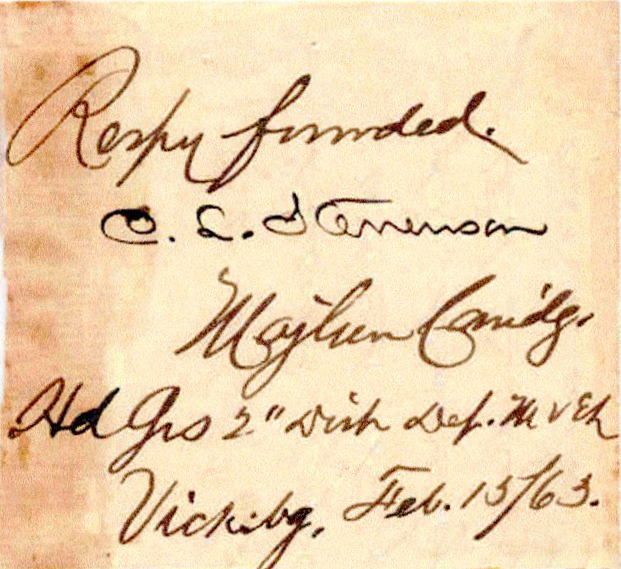 Respy forwarded.
C. L. Stevenson
Maj Gen Comdg.
Hd Qrs 2" Dist Dep. M & E L
Vicksbg, Feb. 15/63.